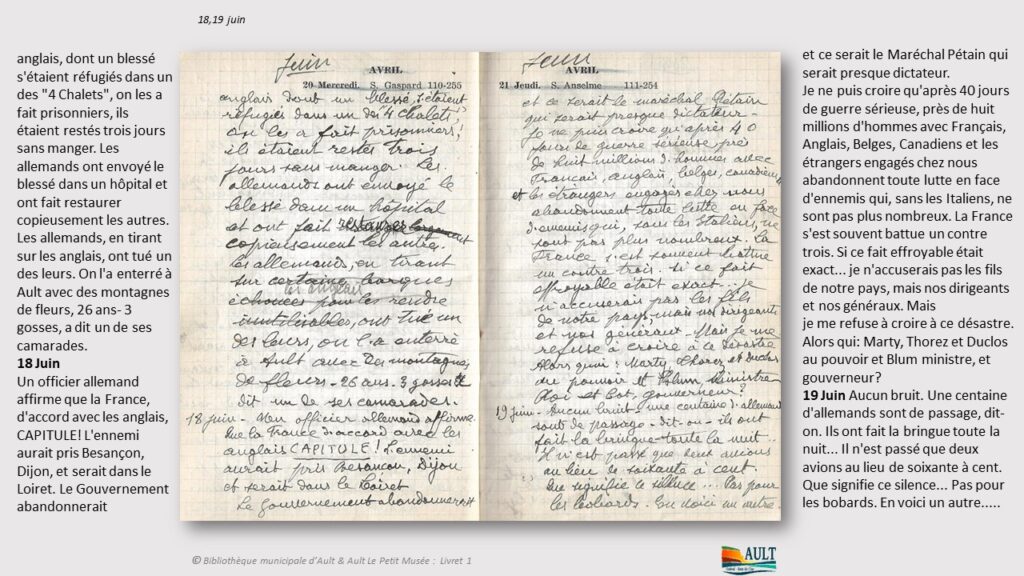 18,19 juin
anglais, dont un blessé
s'étaient réfugiés dans un
des "4 Chalets", on les a
fait prisonniers, ils
étaient restés trois jours
sans manger. Les
allemands ont envoyé le
blessé dans un hôpital et
ont fait restaurer
copieusement les autres.
Les allemands, en tirant
sur les anglais, ont tué un
des leurs. On l'a enterré à
Ault avec des montagnes
de fleurs, 26 ans- 3
gosses, a dit un de ses
camarades.
18 Juin
Un officier allemand
affirme que la France,
d'accord avec les anglais,
CAPITULE! L'ennemi
aurait pris Besançon,
Dijon, et serait dans le
Loiret. Le Gouvernement
abandonnerait
Juin
AVRIL
20 Mercredi. S. Gaspard 110-255
anglais dont un blessé, s'étaient
réfugiés dans un des 4 chalets,
on les a fait prisonniers,
ils étaient restés trois
jours sans manger. Les
allemands ont envoyé le
blessé dans un hôpital
et ont fait restaurer
copieusement les autres.
les allemands, en tirant
sur certaines barques
les anglais
échouées pour les rendre
inutilisables, ont tué un
des leurs, on l'a enterré
à Ault avec des montagnes
de fleurs - 26 ans - 3 gosses a
dit un de ses camarades.
18 juin - Un officier allemand affirme
que la France d'accord avec les
anglais CAPITULE! L'ennemi
aurait pris Besancon, Dijon
et serait dans le Loiret
Le gouvernement abandonnerait
Juin
AVRIL
21 Jeudi. S. Anselme 111-254
et ce serait le maréchal Pétain
qui serait presque dictateur -
Je ne puis croire qu'après 40
jours de guerre sérieuse, près
de huit millions d'hommes avec
Francais, anglais, belges, canadiens
et les étrangers engagés chez nous
abandonnent toute lutte en face
d'ennemis qui, sans les Italiens, ne
sont pas plus nombreux. La
France s'est souvent battue
un contre trois. Si ce fait
effroyable était exact... je
n'accuserais pas les fils
de notre pays, mais nos dirigeants
et nos généraux. Mais je me
refuse à croire à ce désastre
Alors quoi: Marty, Thorez, et Duclos
au pouvoir et Blum ministre
gouverneur?
19 juin - Aucun bruit - une centaine d'allemands
sont de passage - dit-on - ils ont
fait la bringue toute la nuit...
Il n'est passé que deux avions
au lieu de soixante à cent.
Que signifie ce silence... Pas pour
les bobards. En voici un autre
et ce serait le Maréchal Pétain qui
serait presque dictateur.
Je ne puis croire qu'après 40 jours
de guerre sérieuse, près de huit
millions d'hommes avec Français,
Anglais, Belges, Canadiens et les
étrangers engagés chez nous
abandonnent toute lutte en face
d'ennemis qui, sans les Italiens, ne
sont pas plus nombreux. La France
s'est souvent battue un contre
trois. Si ce fait effroyable était
exact... je n'accuserais pas les fils
de notre pays, mais nos dirigeants
et nos généraux. Mais
je me refuse à croire à ce désastre.
Alors qui: Marty, Thorez et Duclos
au pouvoir et Blum ministre, et
gouverneur?
19 Juin Aucun bruit. Une centaine
d'allemands sont de passage, dit-
on. Ils ont fait la bringue toute la
nuit... Il n'est passé que deux
avions au lieu de soixante à cent.
Que signifie ce silence... Pas pour
les bobards. En voici un autre.....
© Bibliothèque municipale d'Ault & Ault Le Petit Musée : Livret 1
AULT